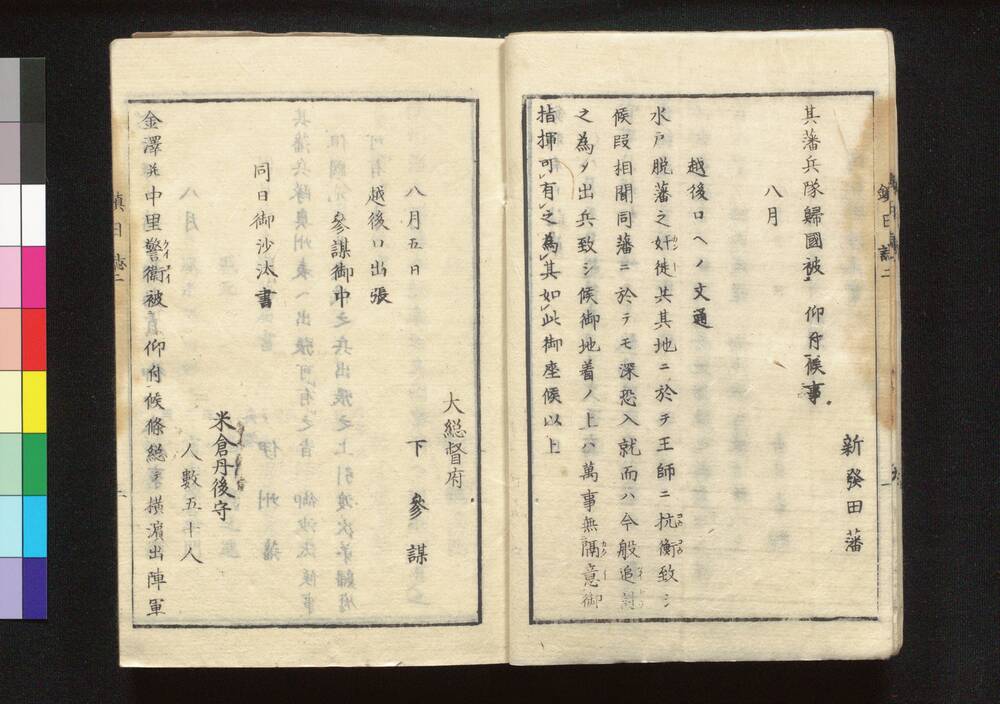 新發田藩
其藩兵隊歸國被　仰付候事
八月
越後口ヘノ文通
水戸脱藩之奸徒共其地ニ於テ王師ニ抗衡致シ
候段相聞同藩ニ於テモ深恐入就而ハ今般追討
之為メ出兵致シ候御地着ノ上ハ萬事無隔意御
指揮可有之為其如此御座候以上
大総督府
八月五日　下參謀
越後口出張
參謀御中
同日御沙汰書
米倉丹後守
人數五十人
金澤并中里警衞被　仰付候條総テ横濱出陣軍
鎮日誌二